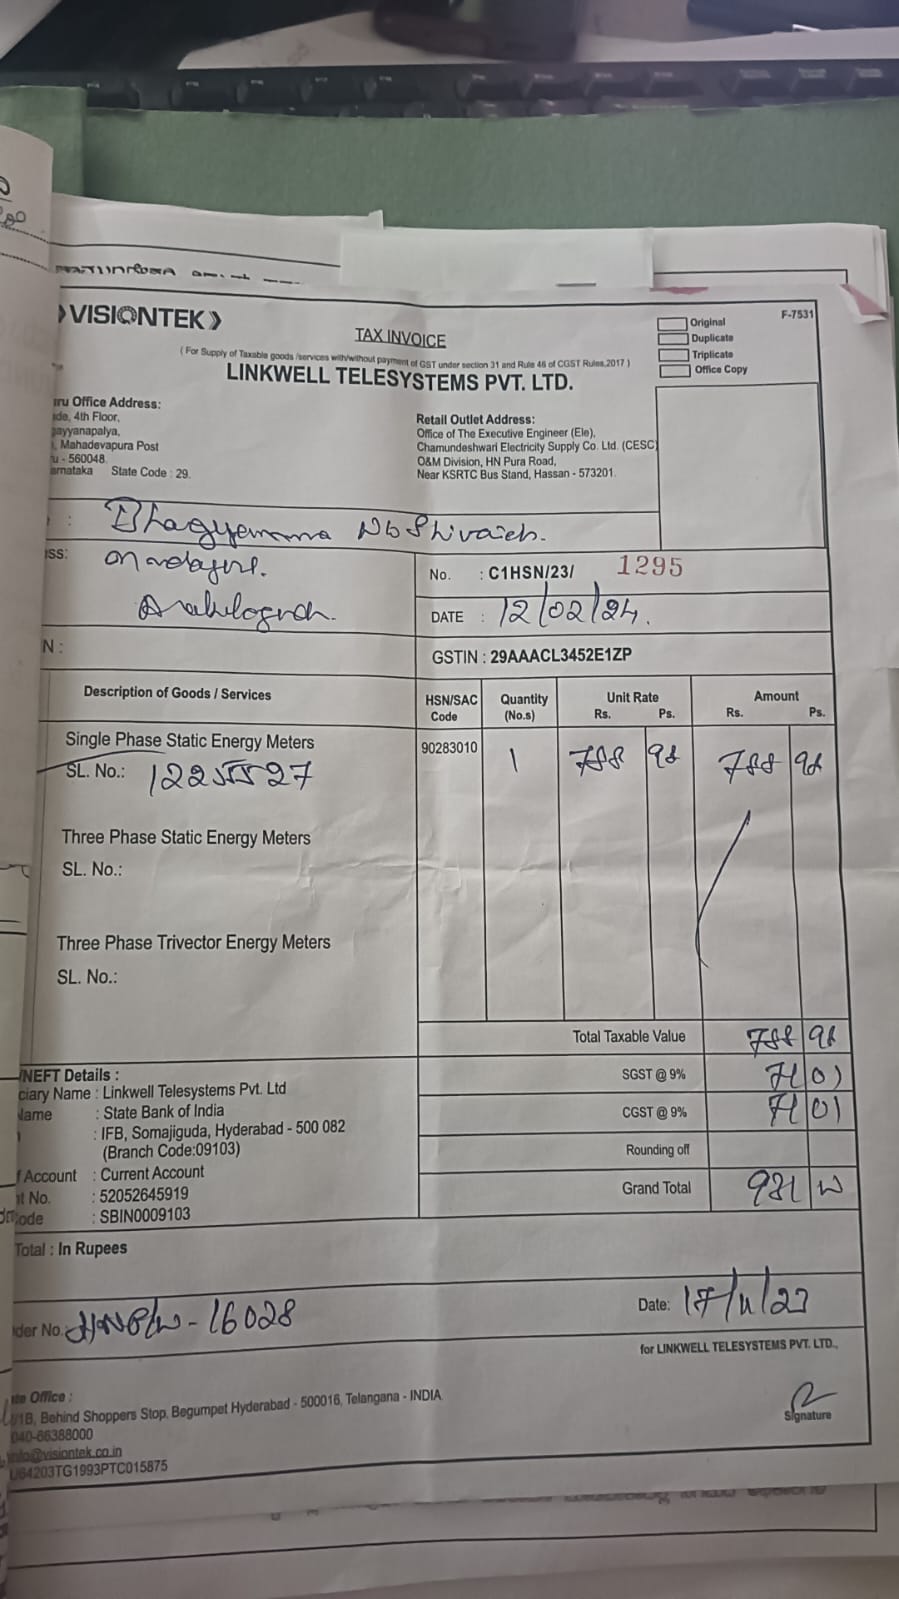 VISIONTEK
TAX INVOICE
( For Supply of Taxable goods /services with/without payment of GST under section 31 and Rule 46 of CGST Rules,2017 )
LINKWELL TELESYSTEMS PVT. LTD.
Original
Duplicate
Triplicate
Office Copy
F-7531
ru Office Address:
de, 4th Floor,
ayyanapalya,
, Mahadevapura Post
u - 560048.
arnataka State Code : 29.
Retail Outlet Address:
Office of The Executive Engineer (Ele),
Chamundeshwari Electricity Supply Co. Ltd. (CESC)
O&M Division, HN Pura Road,
Near KSRTC Bus Stand, Hassan - 573201.
: Bhagyamma
ss:
No. : C1HSN/23/ 1295
DATE : 12/02/24.
N :
GSTIN : 29AAACL3452E1ZP
Description of Goods / Services
HSN/SAC Code
Quantity (No.s)
Unit Rate Rs. Ps.
Amount Rs. Ps.
Single Phase Static Energy Meters 90283010 1 788 98 788 98
SL. No.: 12255527
Three Phase Static Energy Meters
SL. No.:
Three Phase Trivector Energy Meters
SL. No.:
Total Taxable Value 788 98
SGST @ 9% 71 01
CGST @ 9% 71 01
Rounding off
Grand Total 931
NEFT Details :
ciary Name : Linkwell Telesystems Pvt. Ltd
Name : State Bank of India
: IFB, Somajiguda, Hyderabad - 500 082
(Branch Code:09103)
f Account : Current Account
t No. : 52052645919
ode : SBIN0009103
Total : In Rupees
der No. - 16028
Date: 17/11/23
for LINKWELL TELESYSTEMS PVT. LTD.,
Signature
te Office :
1B, Behind Shoppers Stop, Begumpet Hyderabad - 500016, Telangana - INDIA
040-66388000
info@visiontek.co.in
U64203TG1993PTC015875